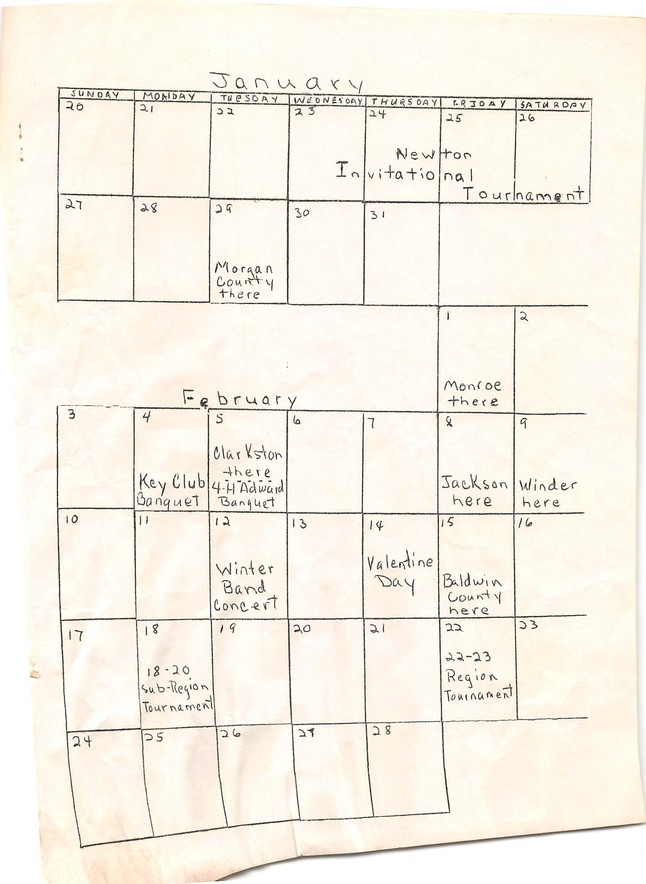 January
SUNDAY MONDAY TUESDAY WEDNESDAY THURSDAY FRIDAY SATURDAY
20 21 22 23 24 25 26
Newton
Invitational
Tournament
27 28 29 30 31
Morgan
County
there
1 2
Monroe
there
February
3 4 5 6 7 8 9
Key Club
Banquet
Clarkston
there
4-H Adward
Banquet
Jackson
here
Winder
here
10 11 12 13 14 15 16
Winter
Band
Concert
Valentine
Day
Baldwin
County
here
17 18 19 20 21 22 23
18-20
Sub-Region
Tournament
22-23
Region
Tournament
24 25 26 27 28